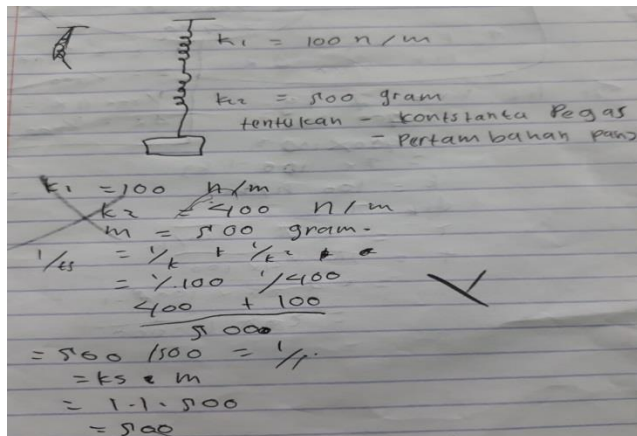 k1 = 100 n/m
k2 = 500 gram
tentukan - kontstanta Pegas
- Pertambahan panj
k1 = 100 n/m
k2 = 400 n/m
m = 500 gram.
1/ks = 1/k + 1/k2
= 1/100 1/400
400 + 100
500
= 500 / 500 = 1/1.
= ks . m
= 1.1.500
= 500